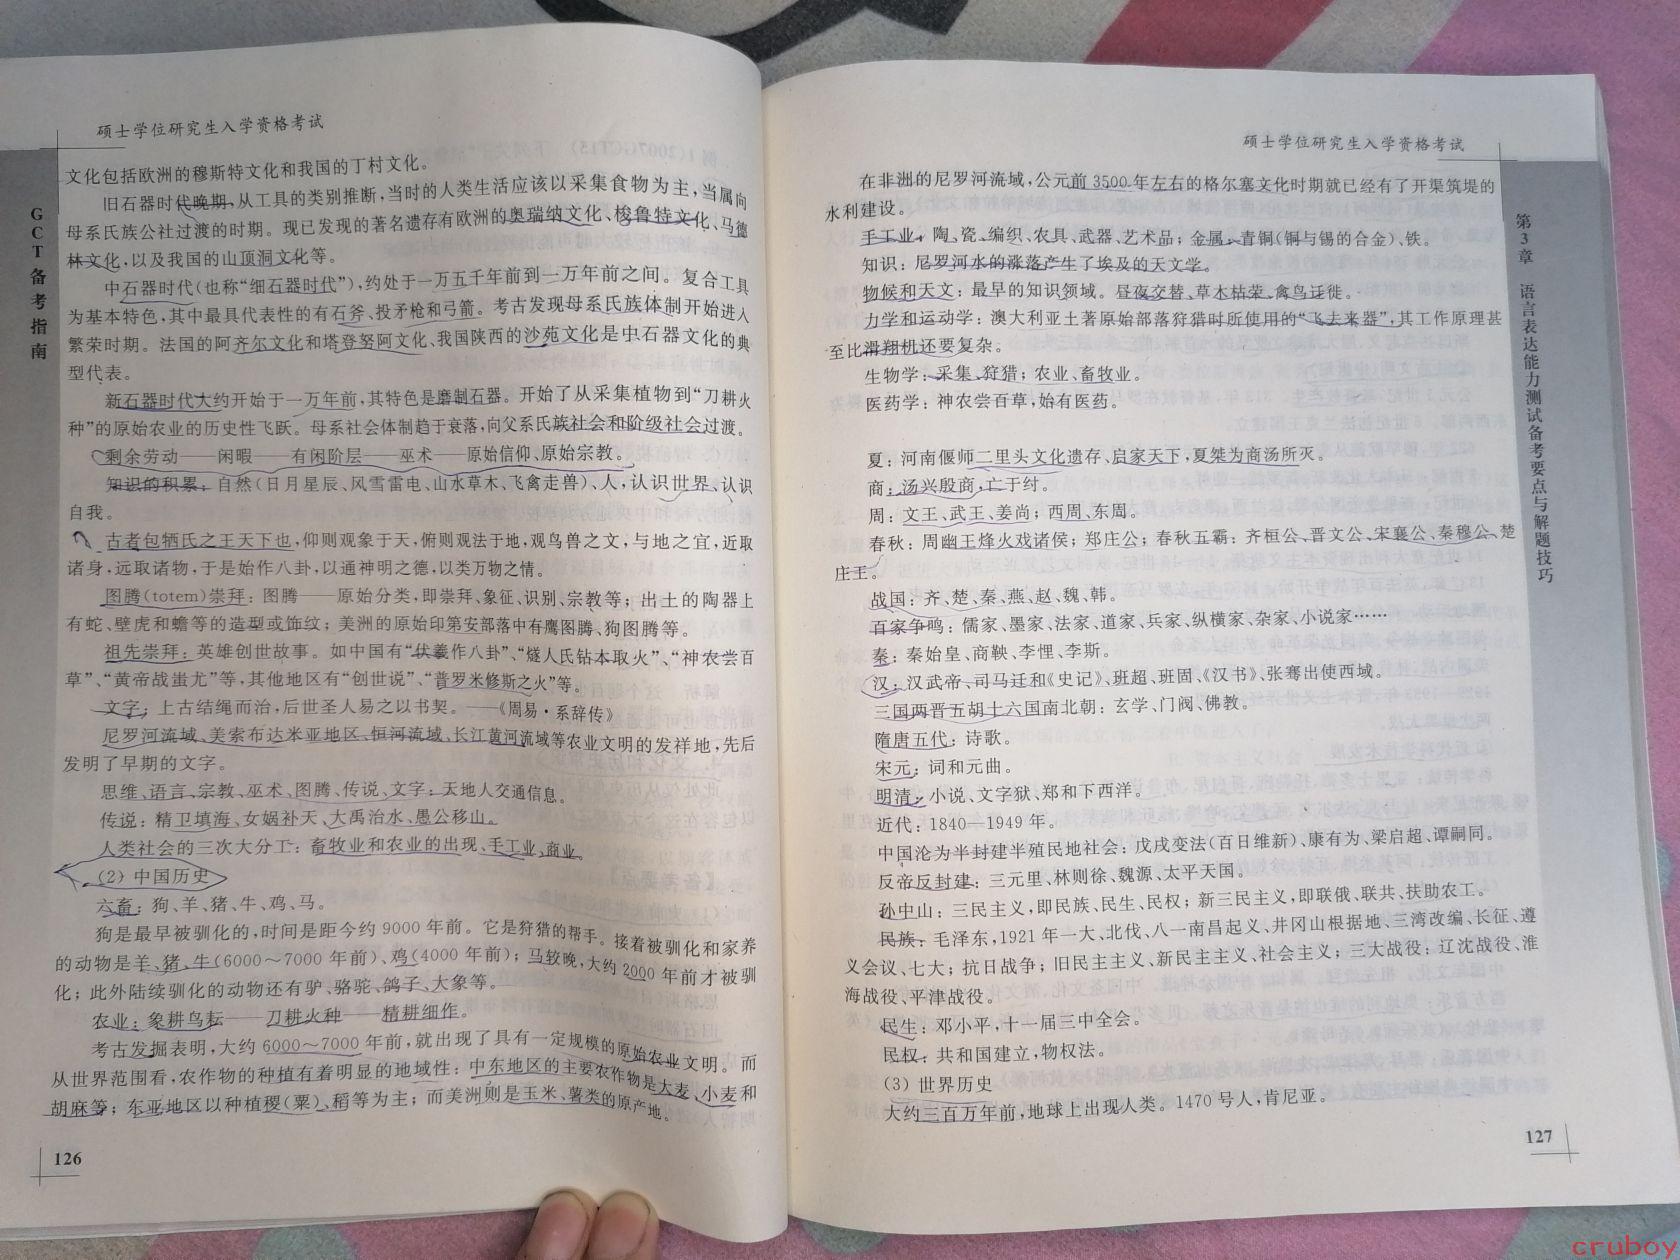 硕士学位研究生入学资格考试
GCT备考指南
文化包括欧洲的穆斯特文化和我国的丁村文化。
旧石器时代晚期,从工具的类别推断,当时的人类生活应该以采集食物为主,当属向
母系氏族公社过渡的时期。现已发现的著名遗存有欧洲的奥瑞纳文化、梭鲁特文化、马德
林文化,以及我国的山顶洞文化等。
中石器时代(也称“细石器时代”),约处于一万五千年前到一万年前之间。复合工具
为基本特色,其中最具代表性的有石斧、投矛枪和弓箭。考古发现母系氏族体制开始进入
繁荣时期。法国的阿齐尔文化和塔登努阿文化、我国陕西的沙苑文化是中石器文化的典
型代表。
新石器时代大约开始于一万年前,其特色是磨制石器。开始了从采集植物到“刀耕火
种”的原始农业的历史性飞跃。母系社会体制趋于衰落,向父系氏族社会和阶级社会过渡。
剩余劳动——闲暇——有闲阶层——巫术——原始信仰、原始宗教。
知识的积累:自然(日月星辰、风雪雷电、山水草木、飞禽走兽)、人,认识世界、认识
自我。
古者包牺氏之王天下也,仰则观象于天,俯则观法于地,观鸟兽之文,与地之宜,近取
诸身,远取诸物,于是始作八卦,以通神明之德,以类万物之情。
图腾(totem)崇拜:图腾——原始分类,即崇拜、象征、识别、宗教等;出土的陶器上
有蛇、壁虎和蟾等的造型或饰纹;美洲的原始印第安部落中有鹰图腾、狗图腾等。
祖先崇拜:英雄创世故事。如中国有“伏羲作八卦”、“燧人氏钻木取火”、“神农尝百
草”、“黄帝战蚩尤”等,其他地区有“创世说”、“普罗米修斯之火”等。
文字:上古结绳而治,后世圣人易之以书契。——《周易·系辞传》
尼罗河流域、美索布达米亚地区、恒河流域、长江黄河流域等农业文明的发祥地,先后
发明了早期的文字。
思维、语言、宗教、巫术、图腾、传说、文字:天地人交通信息。
传说:精卫填海、女娲补天、大禹治水、愚公移山。
人类社会的三次大分工:畜牧业和农业的出现、手工业、商业。
(2) 中国历史
六畜:狗、羊、猪、牛、鸡、马。
狗是最早被驯化的,时间是距今约 9000 年前。它是狩猎的帮手。接着被驯化和家养
的动物是羊、猪、牛(6000～7000 年前)、鸡(4000 年前);马较晚,大约 2000 年前才被驯
化;此外陆续驯化的动物还有驴、骆驼、鸽子、大象等。
农业:象耕鸟耘——刀耕火种——精耕细作。
考古发掘表明,大约 6000～7000 年前,就出现了具有一定规模的原始农业文明。而
从世界范围看,农作物的种植有着明显的地域性:中东地区的主要农作物是大麦、小麦和
胡麻等;东亚地区以种植稷(粟)、稻等为主;而美洲则是玉米、薯类的原产地。
126
硕士学位研究生入学资格考试
第3章 语言表达能力测试备考要点与解题技巧
在非洲的尼罗河流域,公元前 3500 年左右的格尔塞文化时期就已经有了开渠筑堤的
水利建设。
手工业:陶、瓷、编织、农具、武器、艺术品;金属:青铜(铜与锡的合金)、铁。
知识:尼罗河水的涨落产生了埃及的天文学。
物候和天文:最早的知识领域。昼夜交替、草木枯荣、禽鸟迁徙。
力学和运动学:澳大利亚土著原始部落狩猎时所使用的“飞去来器”,其工作原理甚
至比滑翔机还要复杂。
生物学:采集、狩猎;农业、畜牧业。
医药学:神农尝百草,始有医药。
夏:河南偃师二里头文化遗存、启家天下,夏桀为商汤所灭。
商:汤兴殷商,亡于纣。
周:文王、武王、姜尚;西周、东周。
春秋:周幽王烽火戏诸侯;郑庄公;春秋五霸:齐桓公、晋文公、宋襄公、秦穆公、楚
庄王。
战国:齐、楚、秦、燕、赵、魏、韩。
百家争鸣:儒家、墨家、法家、道家、兵家、纵横家、杂家、小说家……
秦:秦始皇、商鞅、李悝、李斯。
汉:汉武帝、司马迁和《史记》、班超、班固、《汉书》、张骞出使西域。
三国两晋五胡十六国南北朝:玄学、门阀、佛教。
隋唐五代:诗歌。
宋元:词和元曲。
明清:小说、文字狱、郑和下西洋。
近代:1840—1949 年。
中国沦为半封建半殖民地社会:戊戌变法(百日维新)、康有为、梁启超、谭嗣同。
反帝反封建:三元里、林则徐、魏源、太平天国。
孙中山:三民主义,即民族、民生、民权;新三民主义,即联俄、联共、扶助农工。
民族:毛泽东,1921 年一大、北伐、八一南昌起义、井冈山根据地、三湾改编、长征、遵
义会议、七大;抗日战争;旧民主主义、新民主主义、社会主义;三大战役:辽沈战役、淮
海战役、平津战役。
民生:邓小平,十一届三中全会。
民权:共和国建立,物权法。
(3) 世界历史
大约三百万年前,地球上出现人类。1470 号人,肯尼亚。
127
cruboy